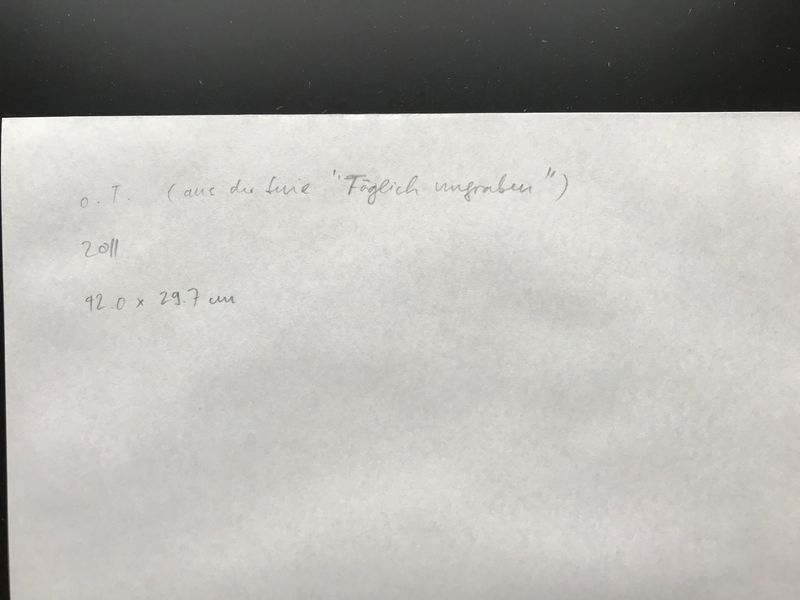 o. T. (aus der Serie "Täglich umgraben")
2011
42.0 x 29.7 cm